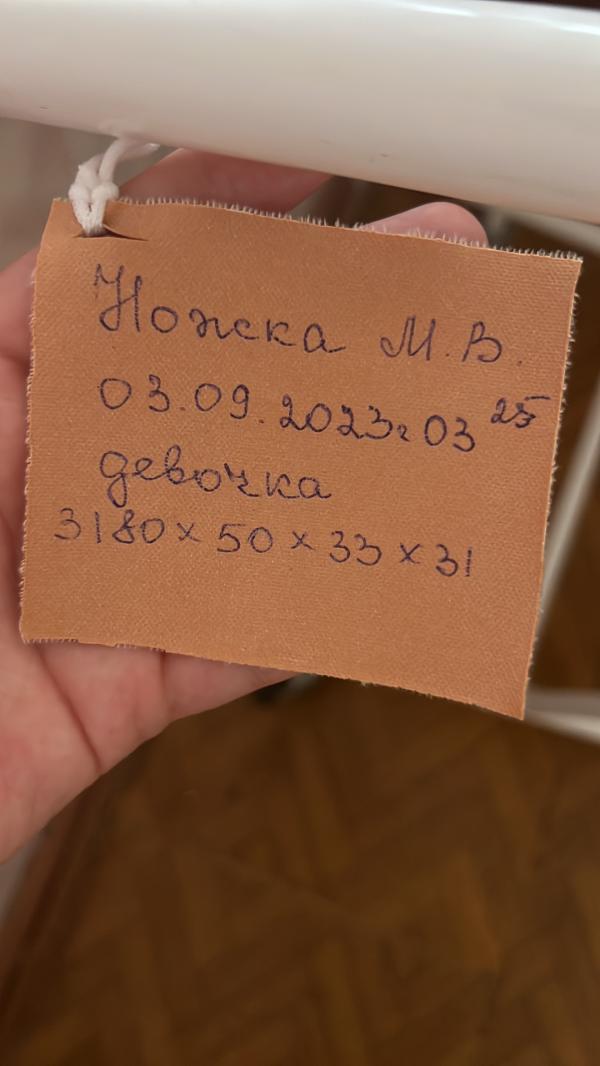 Ножка М.В.
03.09.2023г 03 25
девочка
3180 × 50 × 33 × 31